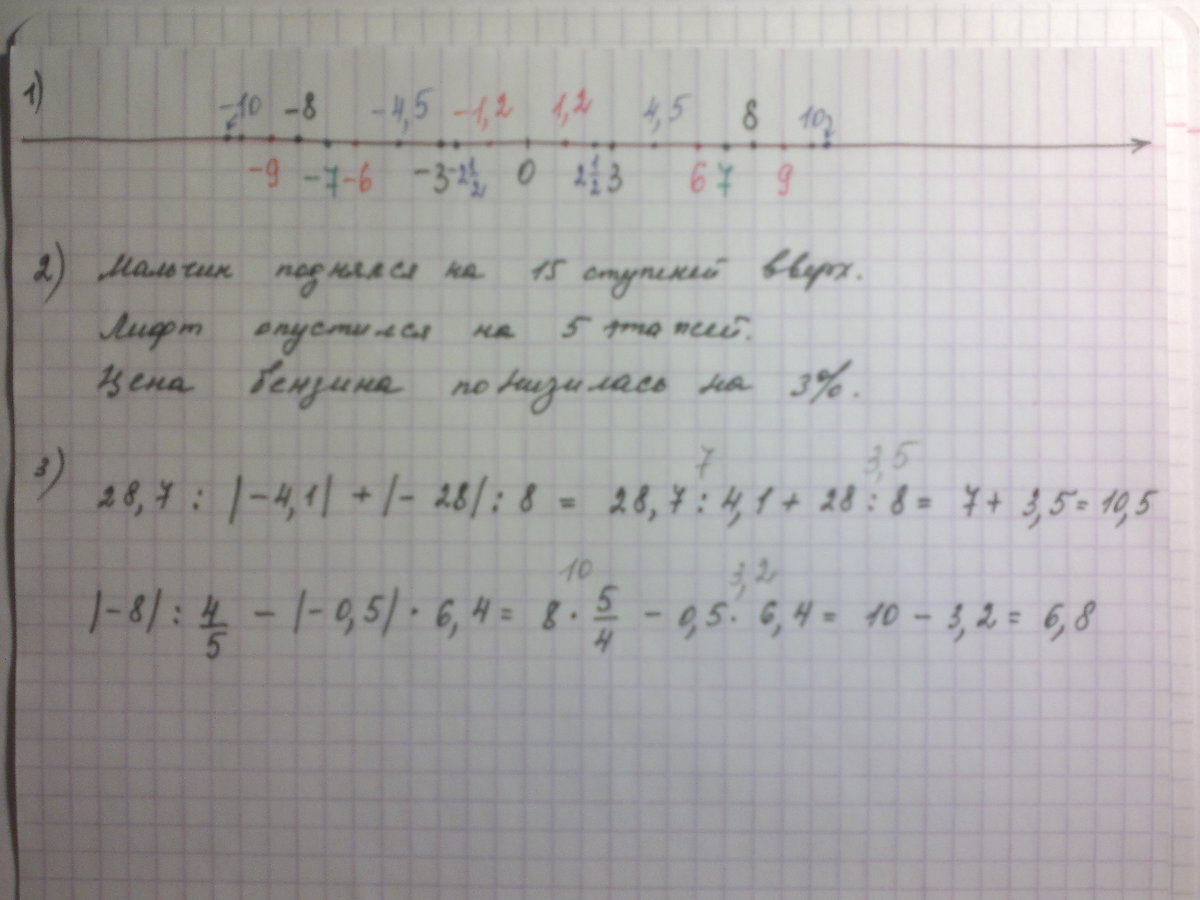 1)
-10 -8 -4,5 -1,2 1,2 4,5 8 10
-9 -7 -6 -3 -2 1/2 0 2 1/2 3 6 7 9
2) Мальчик поднялся на 15 ступеней вверх.
Лифт опустился на 5 этажей.
Цена бензина понизилась на 3%.
3)
7 3,5
28,7 : |-4,1| + |-28| : 8 = 28,7 : 4,1 + 28 : 8 = 7 + 3,5 = 10,5
10 3,2
|-8| : 4/5 - |-0,5| · 6,4 = 8 · 5/4 - 0,5 · 6,4 = 10 - 3,2 = 6,8